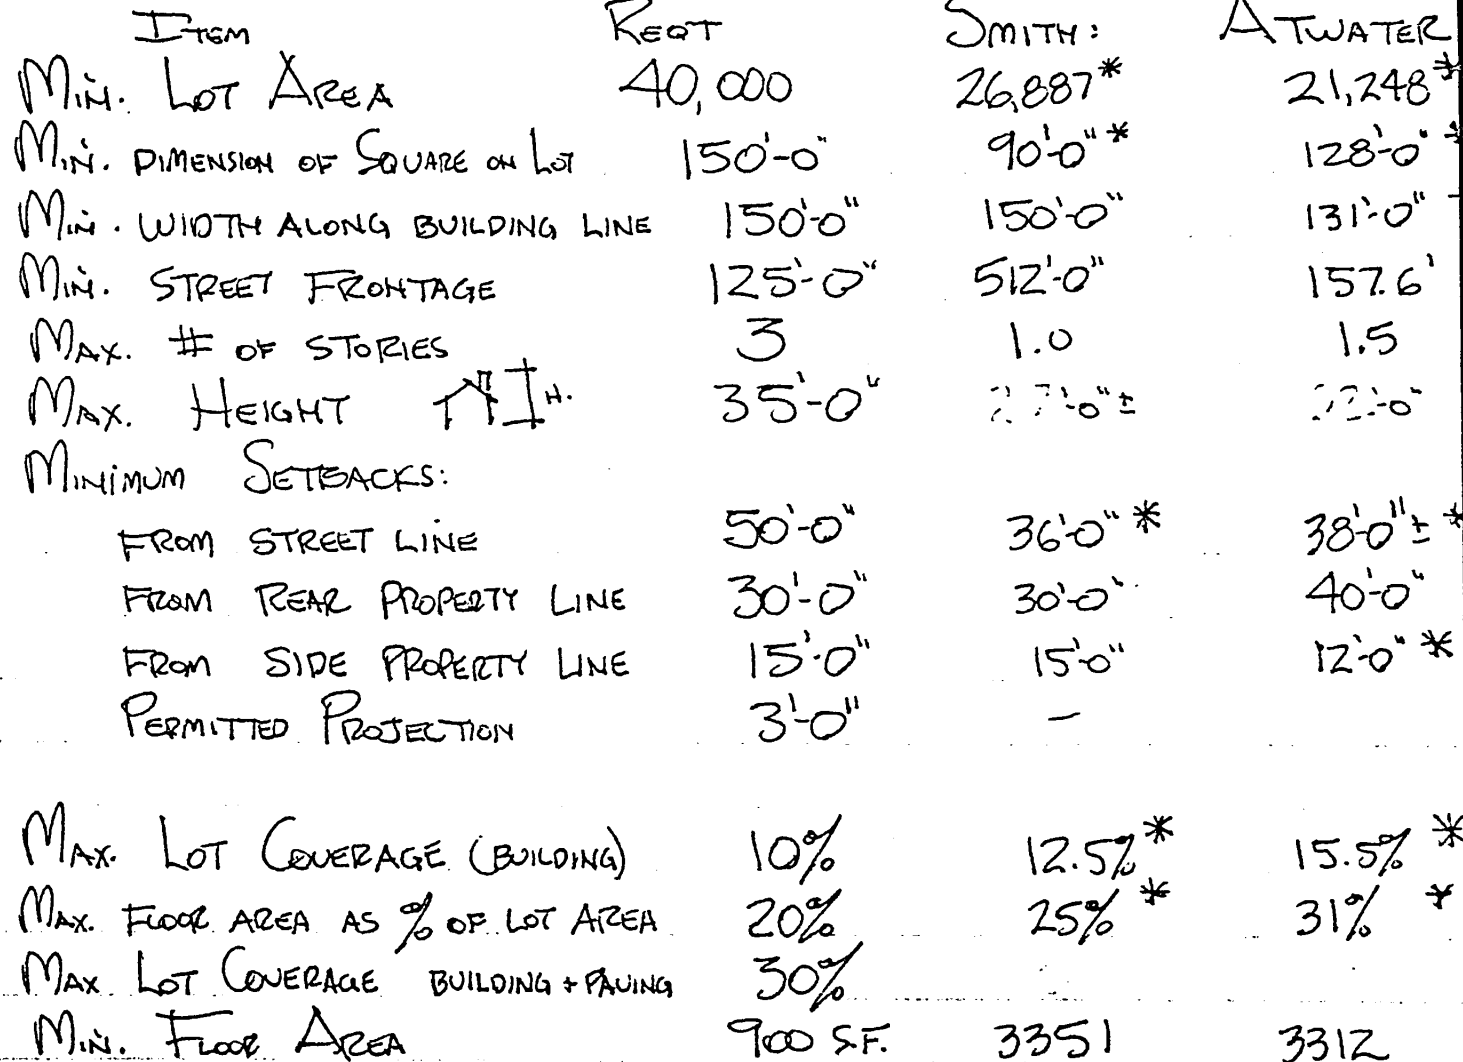 ITEM REQT SMITH: ATWATER
MIN. LOT AREA 40,000 26,887* 21,248*
MIN. DIMENSION OF SQUARE ON LOT 150'-0" 90'-0"* 128'-0"*
MIN. WIDTH ALONG BUILDING LINE 150'-0" 150'-0" 131'-0"
MIN. STREET FRONTAGE 125'-0" 512'-0" 157.6'
MAX. # OF STORIES 3 1.0 1.5
MAX. HEIGHT H. 35'-0"
MINIMUM SETBACKS:
FROM STREET LINE 50'-0" 36'-0"* 38'-0"±*
FROM REAR PROPERTY LINE 30'-0" 30'-0" 40'-0"
FROM SIDE PROPERTY LINE 15'-0" 15'-0" 12'-0"*
PERMITTED PROJECTION 3'-0" —
MAX. LOT COVERAGE (BUILDING) 10% 12.5%* 15.5%*
MAX. FLOOR AREA AS % OF LOT AREA 20% 25%* 31%*
MAX LOT COVERAGE BUILDING + PAVING 30%
MIN. FLOOR AREA 900 S.F. 3351 3312